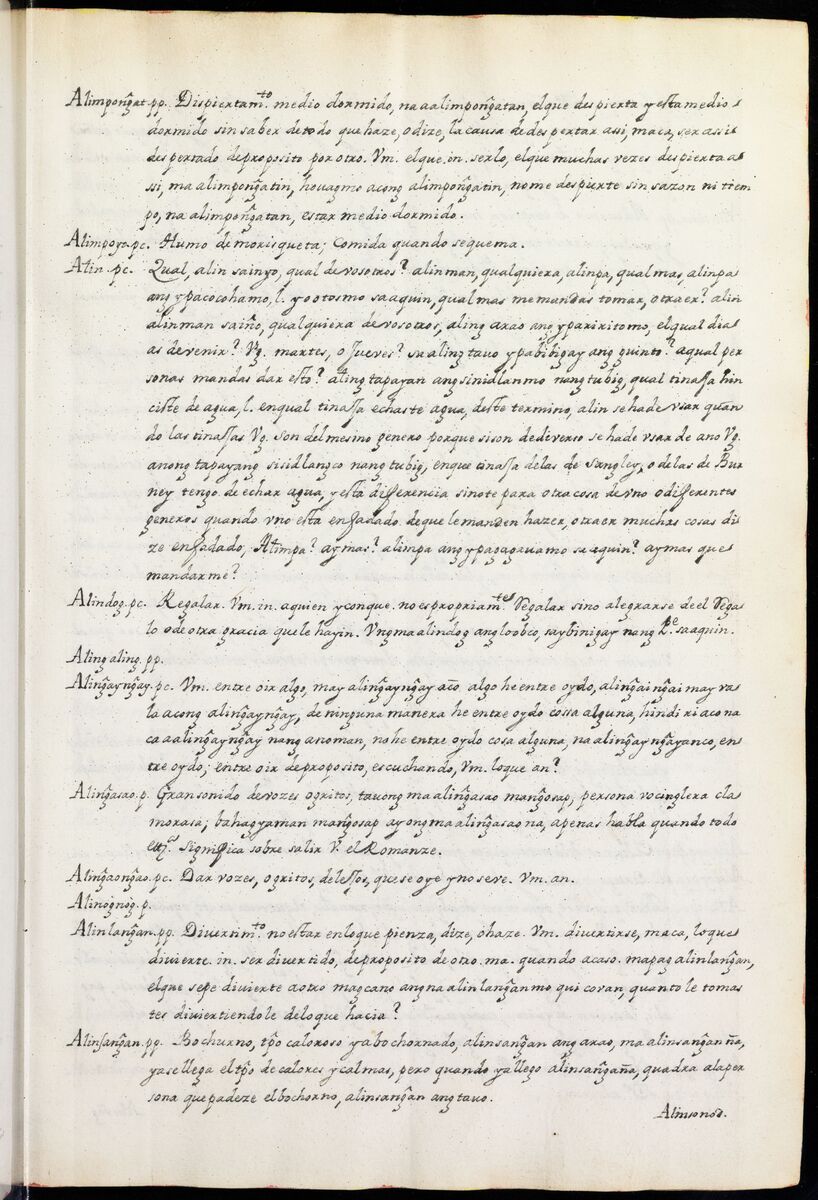 Alimpong̃at. pp. Dispiertam.to medio dormido, na aalimpong̃atan, el que despierta y esta medio
dormido sin saber de todo que haze, o dize, la causa de despertar asi, maca, ser assi
despertado de proposito por otro. Vm. el que. in. serlo, el que muchas vezes despierta a
ssi, ma alimpong̃atin, houag mo acong alimpong̃atin, no me despierte sin sazon ni tiem
po, na alimpong̃atan, estar medio dormido.
Alimpoyo. pc. Humo de morisqueta; comida quando se quema.
Alin. pc. Qual, alin sa inyo, qual de vosotros? alinman, qualquiera, alinpa, qual mas, alinpa
ang ypacocoha mo, l. yootos mo sa aquin, qual mas me mandas tomar, o traer? alin
alinman sa iño, qualquiera de vosotros, aling arao ang yparirito mo, el qual dia
as de venir? Vg. martes, o Jueves? sa aling tauo ypabibigay ang guinto? a qual per
sonas mandas dar esto? aling tapayan ang sinidlan mo nang tubig, qual tinassa hin
ciste de agua, l. en qual tinassa echaste agua, deste termino, alin se hade vsar quan
do las tinassas Vg. son del mesmo genero porque si son de diverso se hade vsar de ano Vg.
anong tapayang sisidlang co nang tubig, en que tinassa de las de Sangley, o de las de Bur
ney tengo de echar agua, y esta diferencia si note para otra cosa de vno o diferentes
generos quando vno esta enfadado de que le manden hazer, o traer muchas cosas di
ze enfadado, Alimpa? ay mas? alimpa ang ypagagaua mo sa aquin? ay mas que
mandarme?
Alindog. pc. Regalar. Vm. in. a quien y con que. no es propriam.te Regalar sino alegrarse de el Rega
lo o de otra gracia que le hayin. Vngmaalindog ang loob co, sa ybinigay nang P.e sa aquin.
Aling aling. pp.
Aling̃ayng̃ay. pc. Vm. entre oir algo, may aling̃ayng̃ay aco algo he entre oydo, aling̃aing̃ai may va
la acong aling̃ayng̃ay, de ninguna manera he entre oydo cossa alguna, hindi ri aco na
ca aaling̃ayng̃ay nang anoman, no he entre oydo cosa alguna, na aling̃ayng̃ayan co, en
tre oydo; entre oir de proposito, escuchando, Vm. lo que an?
Aling̃asao. p. Gran sonido de vozes o gritos, tauong maaling̃asao mang̃osap, persona vocinglera cla
morasa; bahagya man mang̃osap ay ong maaling̃asao na, apenas habla quando todo
es significa sobre salir V. el Romanze.
Aling̃aong̃ao. pc. Dar vozes, o gritos, de lessos, que se oye y no se ve. Vm. an.
Alinognog. p.
Alinlang̃an. pp. Divertim.to no estar en loque pienza, dize, o haze. Vm. divertirse, maca, lo que
divierte. in. ser divertido, de proposito de otro. ma. quando acaso. mapag alinlang̃an,
el que sepe divierte a otro magcano ang na alinlang̃an mo qui coran, quanto le tomas
tes diviertiendole delo que hacia?
Alinsang̃an. pp. Bochurno, tp̃o caloroso y abochornado, alinsang̃an ang arao, ma alinsang̃an ña,
ya se llega el tp̃o de calores y calmas, pero quando ya llego alinsang̃aña, quadra ala per
sona que padeze el bochorno, alinsang̃an ang tauo.
Alinsonod.